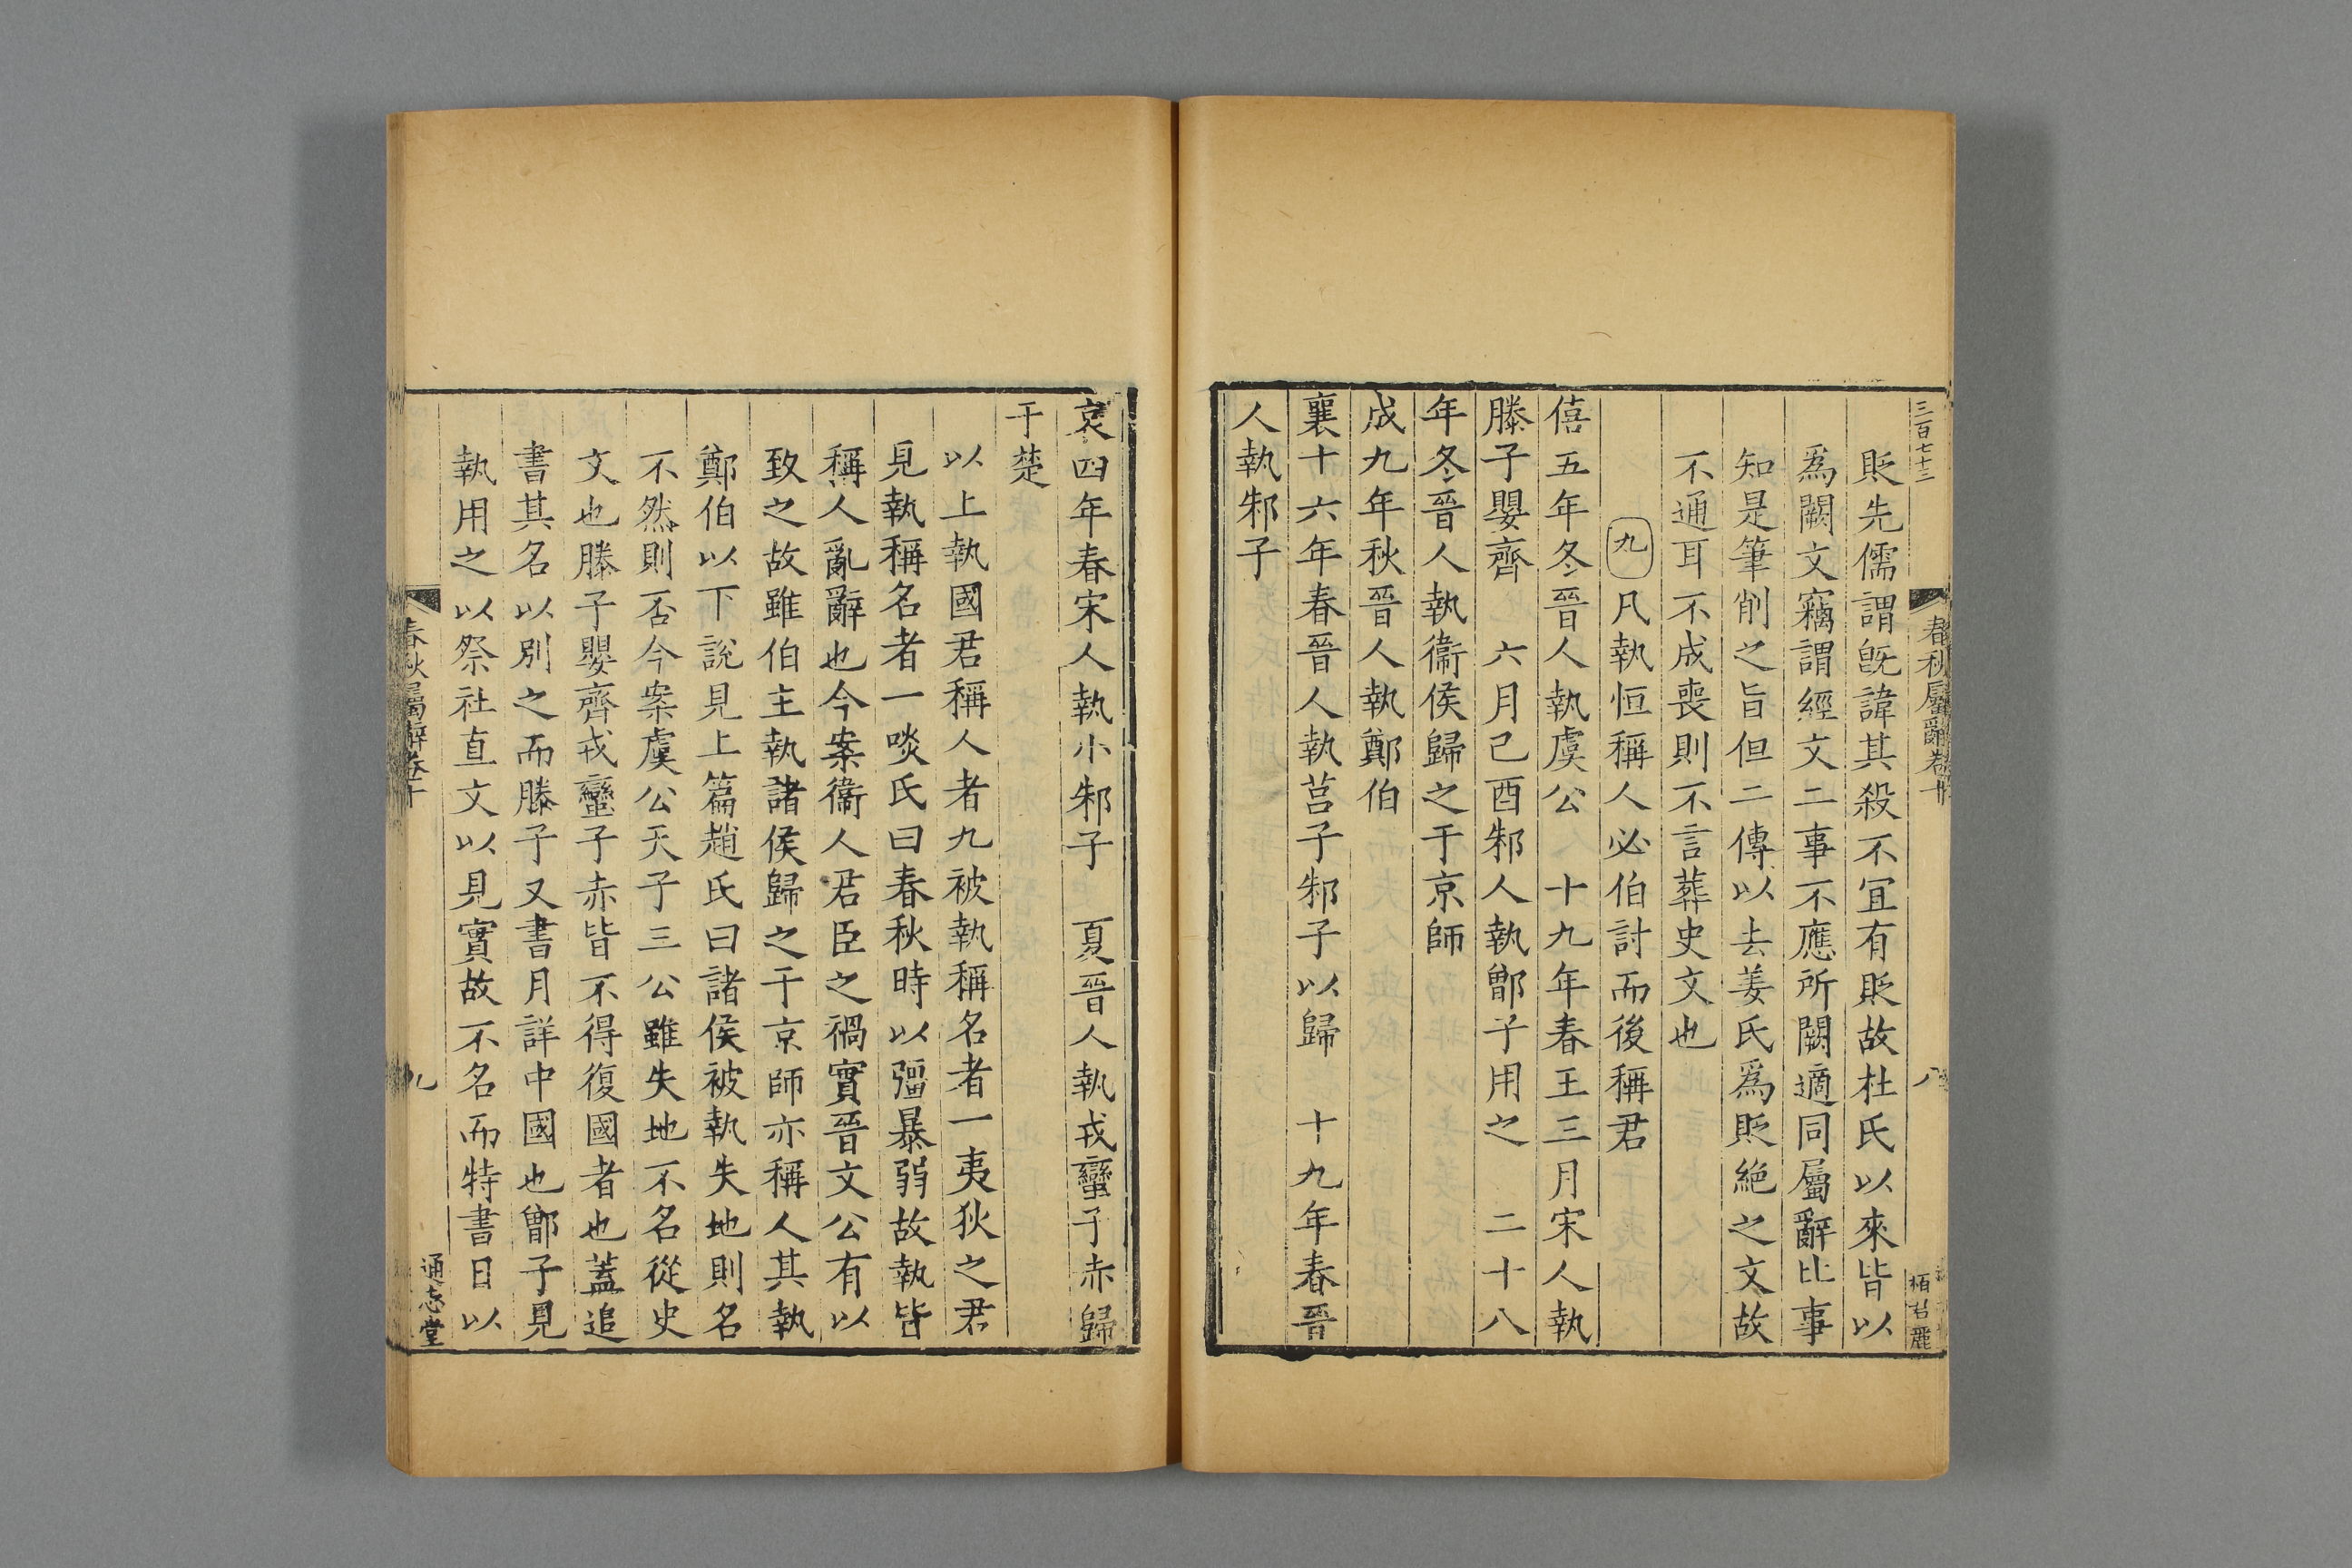 三百七十三
春秋屬辭卷十
八
貶先儒謂旣諱其殺不宜有貶故杜氏以來皆以
爲闕文竊謂經文二事不應所闕適同屬辭比事
知是筆削之旨但二傳以去姜氏爲貶絶之文故
不通耳不成喪則不言葬史文也
九凡執恒稱人必伯討而後稱君
僖五年冬晉人執虞公 十九年春王三月宋人執
滕子嬰齊 六月己酉邾人執鄫子用之 二十八
年冬晉人執衞侯歸之于京師
成九年秋晉人執鄭伯
襄十六年春晉人執莒子邾子以歸 十九年春晉
人執邾子
哀四年春宋人執小邾子 夏晉人執戎蠻子赤歸
于楚
以上執國君稱人者九被執稱名者一夷狄之君
見執稱名者一啖氏曰春秋時以彊暴弱故執皆
稱人亂辭也今案衞人君臣之禍實晉文公有以
致之故雖伯主執諸侯歸之于京師亦稱人其執
鄭伯以下說見上篇趙氏曰諸侯被執失地則名
不然則否今案虞公天子三公雖失地不名從史
文也滕子嬰齊戎蠻子赤皆不得復國者也蓋追
書其名以別之而滕子又書月詳中國也鄫子見
執用之以祭社直文以見實故不名而特書日以
春秋屬辭卷十
九
通志堂